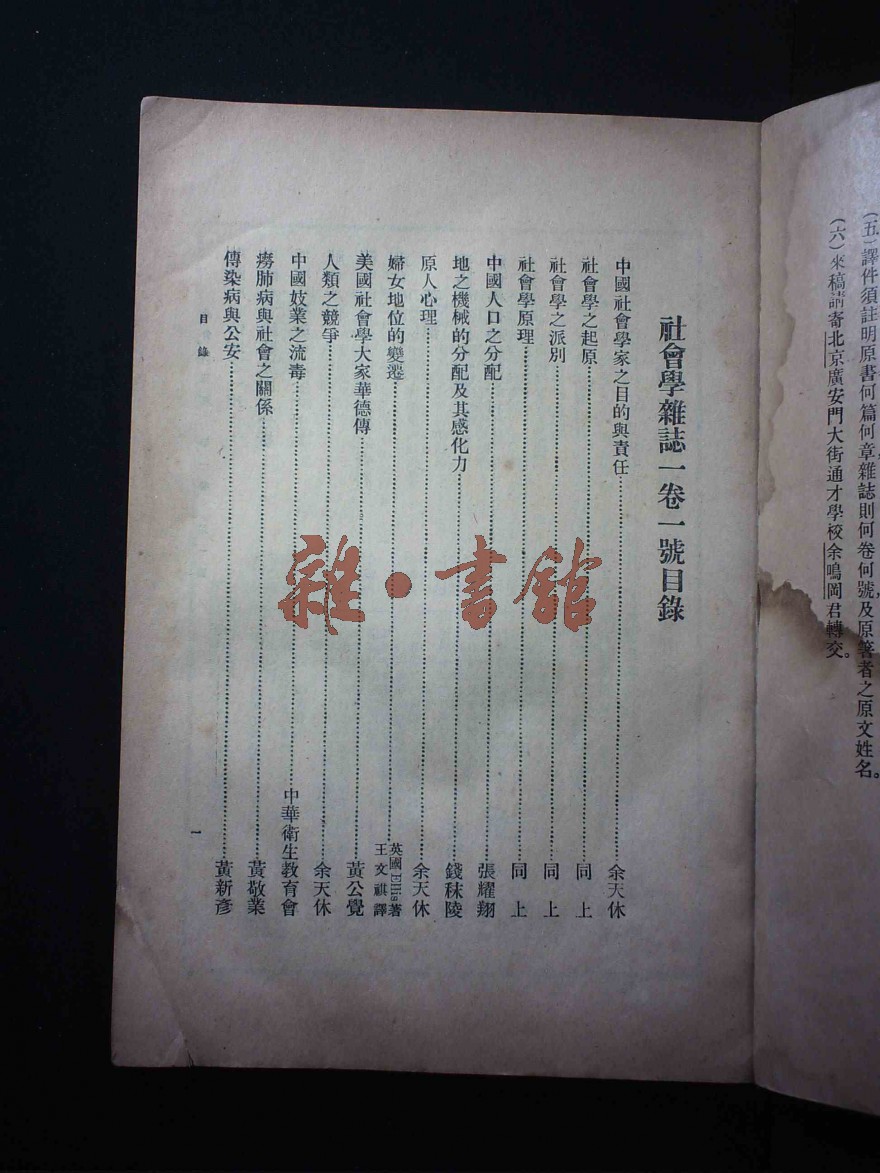 (五)譯件須註明原書何篇何章雜誌則何卷何號及原著者之原文姓名。
(六)來稿請寄北京廣安門大街通才學校余鳴岡君轉交。
社會學雜誌一卷一號目錄
中國社會學家之目的與責任……余天休
社會學之起原……同上
社會學之派別……同上
社會學原理……同上
中國人口之分配……張耀翔
地之機械的分配及其感化力……錢秣陵
原人心理……余天休
婦女地位的變遷……英國Ellis著 王文祺譯
美國社會學大家華德傳……黃公覺
人類之競爭……余天休
中國妓業之流毒……中華衛生教育會
癆肺病與社會之關係……黃敬業
傳染病與公安……黃新彥
目錄
一
雜·書館